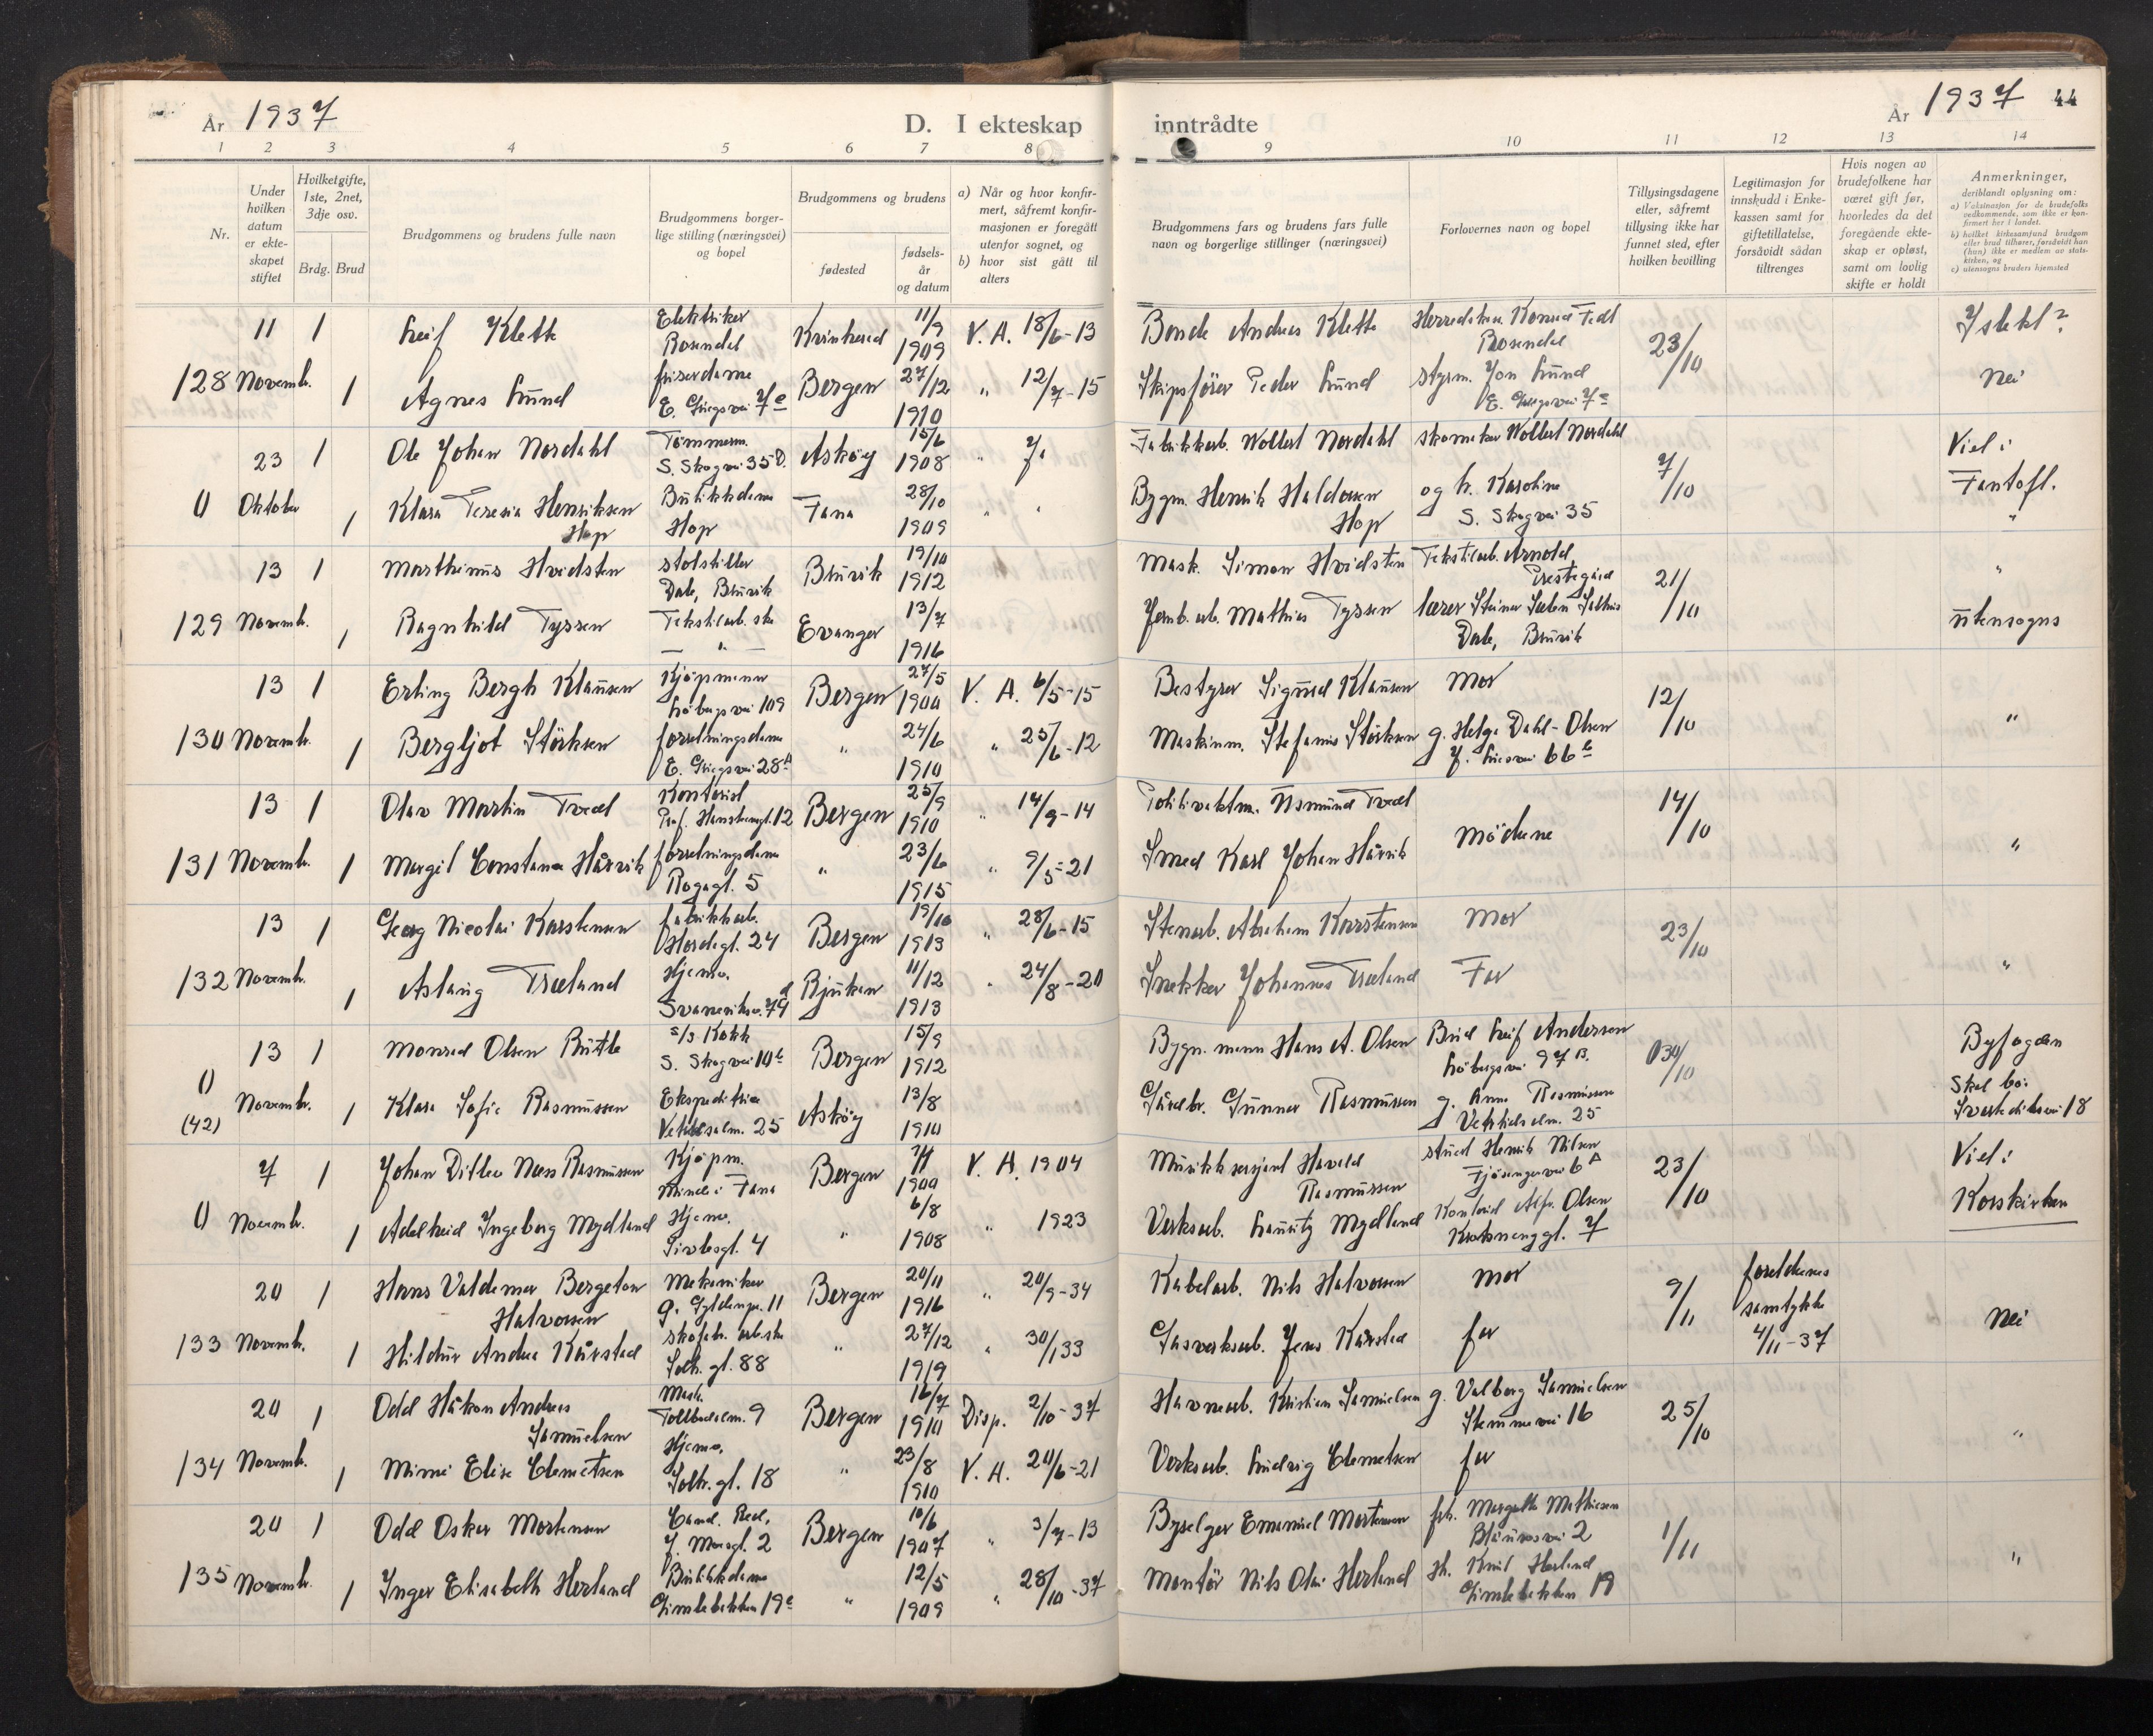 År 1937
D. I ekteskap inntrådte
År 1937 44
1 2 3 4 5 6 7 8 9 10 11 12 13 14
Nr.
Under hvilken datum er ekteskapet stiftet
Hvilketgifte, 1ste, 2net, 3dje osv.
Brdg. Brud
Brudgommens og brudens fulle navn
Brudgommens borgerlige stilling (næringsvei) og bopel
Brudgommens og brudens
fødested
fødselsår og datum
a) Når og hvor konfirmert, såfremt konfirmasjonen er foregått utenfor sognet, og
b) hvor sist gått til alters
Brudgommens fars og brudens fars fulle navn og borgerlige stillinger (næringsvei)
Forlovernes navn og bopel
Tillysingsdagene eller, såfremt tillysing ikke har funnet sted, efter hvilken bevilling
Legitimasjon for innskudd i Enkekassen samt for giftetillatelse, forsåvidt sådan tiltrenges
Hvis nogen av brudefolkene har været gift før, hvorledes da det foregående ekteskap er opløst, samt om lovlig skifte er holdt
Anmerkninger,
deriblandt oplysning om:
a) Vaksinasjon for de brudefolks vedkommende, som ikke er konfirmert her i landet.
b) hvilket kirkesamfund brudgom eller brud tilhører, forsåvidt han (hun) ikke er medlem av statskirken, og
c) utensogns bruders hjemsted
11 1 Leif Klette Elektriker Rosendal 11/9 1909 V. A. 18/6-13 Bonde Andreas Klette Rosendal 23/10
128 Novemb. 1 Agnes Lund friserdame E. Griegsvei 7e Bergen 27/12 1910 " 12/7-15 Skipsfører Peder Lund styrm. Jon Lund E. Griegsvei 7e Nei
23 1 Ole Johan Nordahl Tømmerm. S. Skogvei 35 Askøy 15/6 1908 " Fabrikkarb. Wollert Nordahl skomaker Wollert Nordahl 7/10 Viel i
0 Oktober 1 Klara Teresia Henriksen Hop Butikkdame Hop Fana 28/10 1909 " " Bygm. Henrik Haldorsen Hop og h. Karoline S. Skogvei 35 Fantoft.
"
13 1 Marthinus Hvidsten Dale, Bruvik Bruvik 19/10 1912 Mask. Simon Hvidsten Tekstilarb. Arnold Prestegård 21/10 "
129 Novemb. 1 Ragnhild Tyssen Tekstilarb.ske — " — Evanger 13/7 1916 Jernb. arb. Mathias Tyssen lærer Dale, Bruvik utensogns
13 1 Erling Bergh Klausen Kjøpmann 109 Bergen 27/5 1900 V. A. 6/5-15 Bestyrer Sigurd Klausen Mor 12/10
130 Novemb. 1 Bergljot Störksen forretningsdame E. Griegsvei 28A " 24/6 1910 " 25/6-12 Maskinm. Stefanus Störksen g. Helga Dahl-Olsen 66b "
13 1 Olav Martin Tveit Kontorist Prof. Hansteensgt. 12 Bergen 25/9 1910 " 14/9-14 14/10
131 Novemb. 1 Margit Constance Håvik forretningsdame 5 " 23/6 1915 " 9/5-21 Smed Karl Johan Håvik Mødrene "
13 1 Georg Nicolai Karstensen fabrikkarb. Hordagt. 24 Bergen 19/10 1913 " 28/6-15 Stenarb. Abraham Karstensen Mor 23/10
132 Novemb. 1 Aslaug Træland Hjemv. Rjukan 11/12 1913 " 24/8-20 Snekker Johannes Træland Far "
13 1 Monrad Olsen s/s Kokk S. Skogvei 10b Bergen 15/9 1912 Bygn. mann Hans A. Olsen Leif Andersen 97B. 30/10 Byfogden
0 (42) Novemb. 1 Klara Sofie Rasmussen Ekspeditrise 25 Askøy 13/8 1910 Gunnar Rasmussen g. Anna Rasmussen 25 Skal bo: 18
7 1 Johan Ditlev Næss Rasmussen Kjøpm. Minde i Fana Bergen 1900 V. A. 1904 Musikksersjant Harald Rasmussen stud Henrik Nilsen Fjøsangervei 6A 23/10 Viel i
0 Novemb. 1 Adelheid Ingeborg Mydland Hjemv. 4 " 6/8 1908 " 1923 Verksarb. Lauritz Mydland Kontorist Alfr. Olsen 7 Korskirken
20 1 Hans Valdemar Bergeton Halvorsen Mekaniker 11 Bergen 20/11 1916 " 20/9-34 Kabelarb. Nils Halvorsen Mor 9/11 foreldrenes samtykke 4/11-37
133 Novemb. 1 Hildur Andrea Kårstad skofabr. arb.ske Solh.gt. 88 " 27/12 1919 " 30/133 Gasverksarb. Jens Kårstad far Nei
20 1 Odd Håkon Andreas Samuelsen Mask. Tollbodalm. 9 Bergen 16/7 1910 Disp. 2/10-37 Havnearb. Kristian Samuelsen g. Valborg Samuelsen Stemmevei 16 25/10
134 Novemb. 1 Mimi Elise Clemetsen Hjemv. Solh.gt. 18 " 23/8 1910 V. A. 20/6-21 Verksarb. Ludvig Clemetsen far "
20 1 Odd Oskar Mortensen 2 Bergen 10/6 1907 " 3/7-13 Byselger Emanuel Mortensen frk. Margrethe Mathiesen 2 1/11
135 Novemb. 1 Inger Elisabeth Herland Butikkdame Gimlebakken 19c " 12/5 1909 " 28/10-37 Montør Nils Olai Herland Knut Herland Gimlebakken 19 "